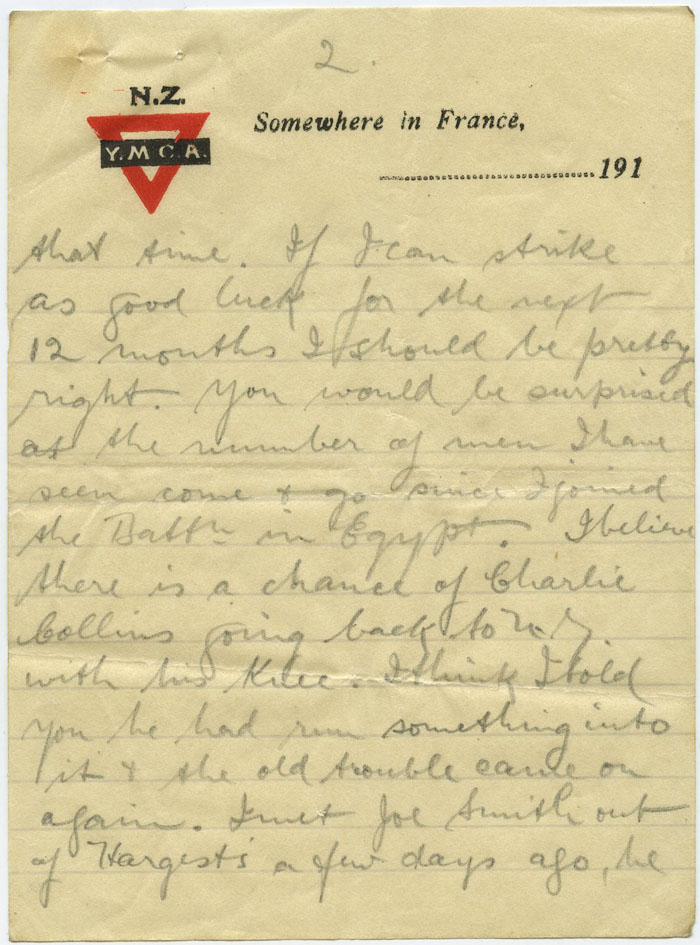 2.
N.Z.
Y.M.C.A.
Somewhere in France,
....................................191
that time. If I can strike
as good luck for the next
12 months I should be pretty
right. You would be surprised
at the number of men I have
seen come & go since I joined
the Battn in Egypt. I believe
there is a chance of Charlie
Collins going back to N.Z.
with his Knee. I think I told
you he had run something into
it & the old trouble came on
again. I met Joe Smith out
of Hargest's a few days ago, he